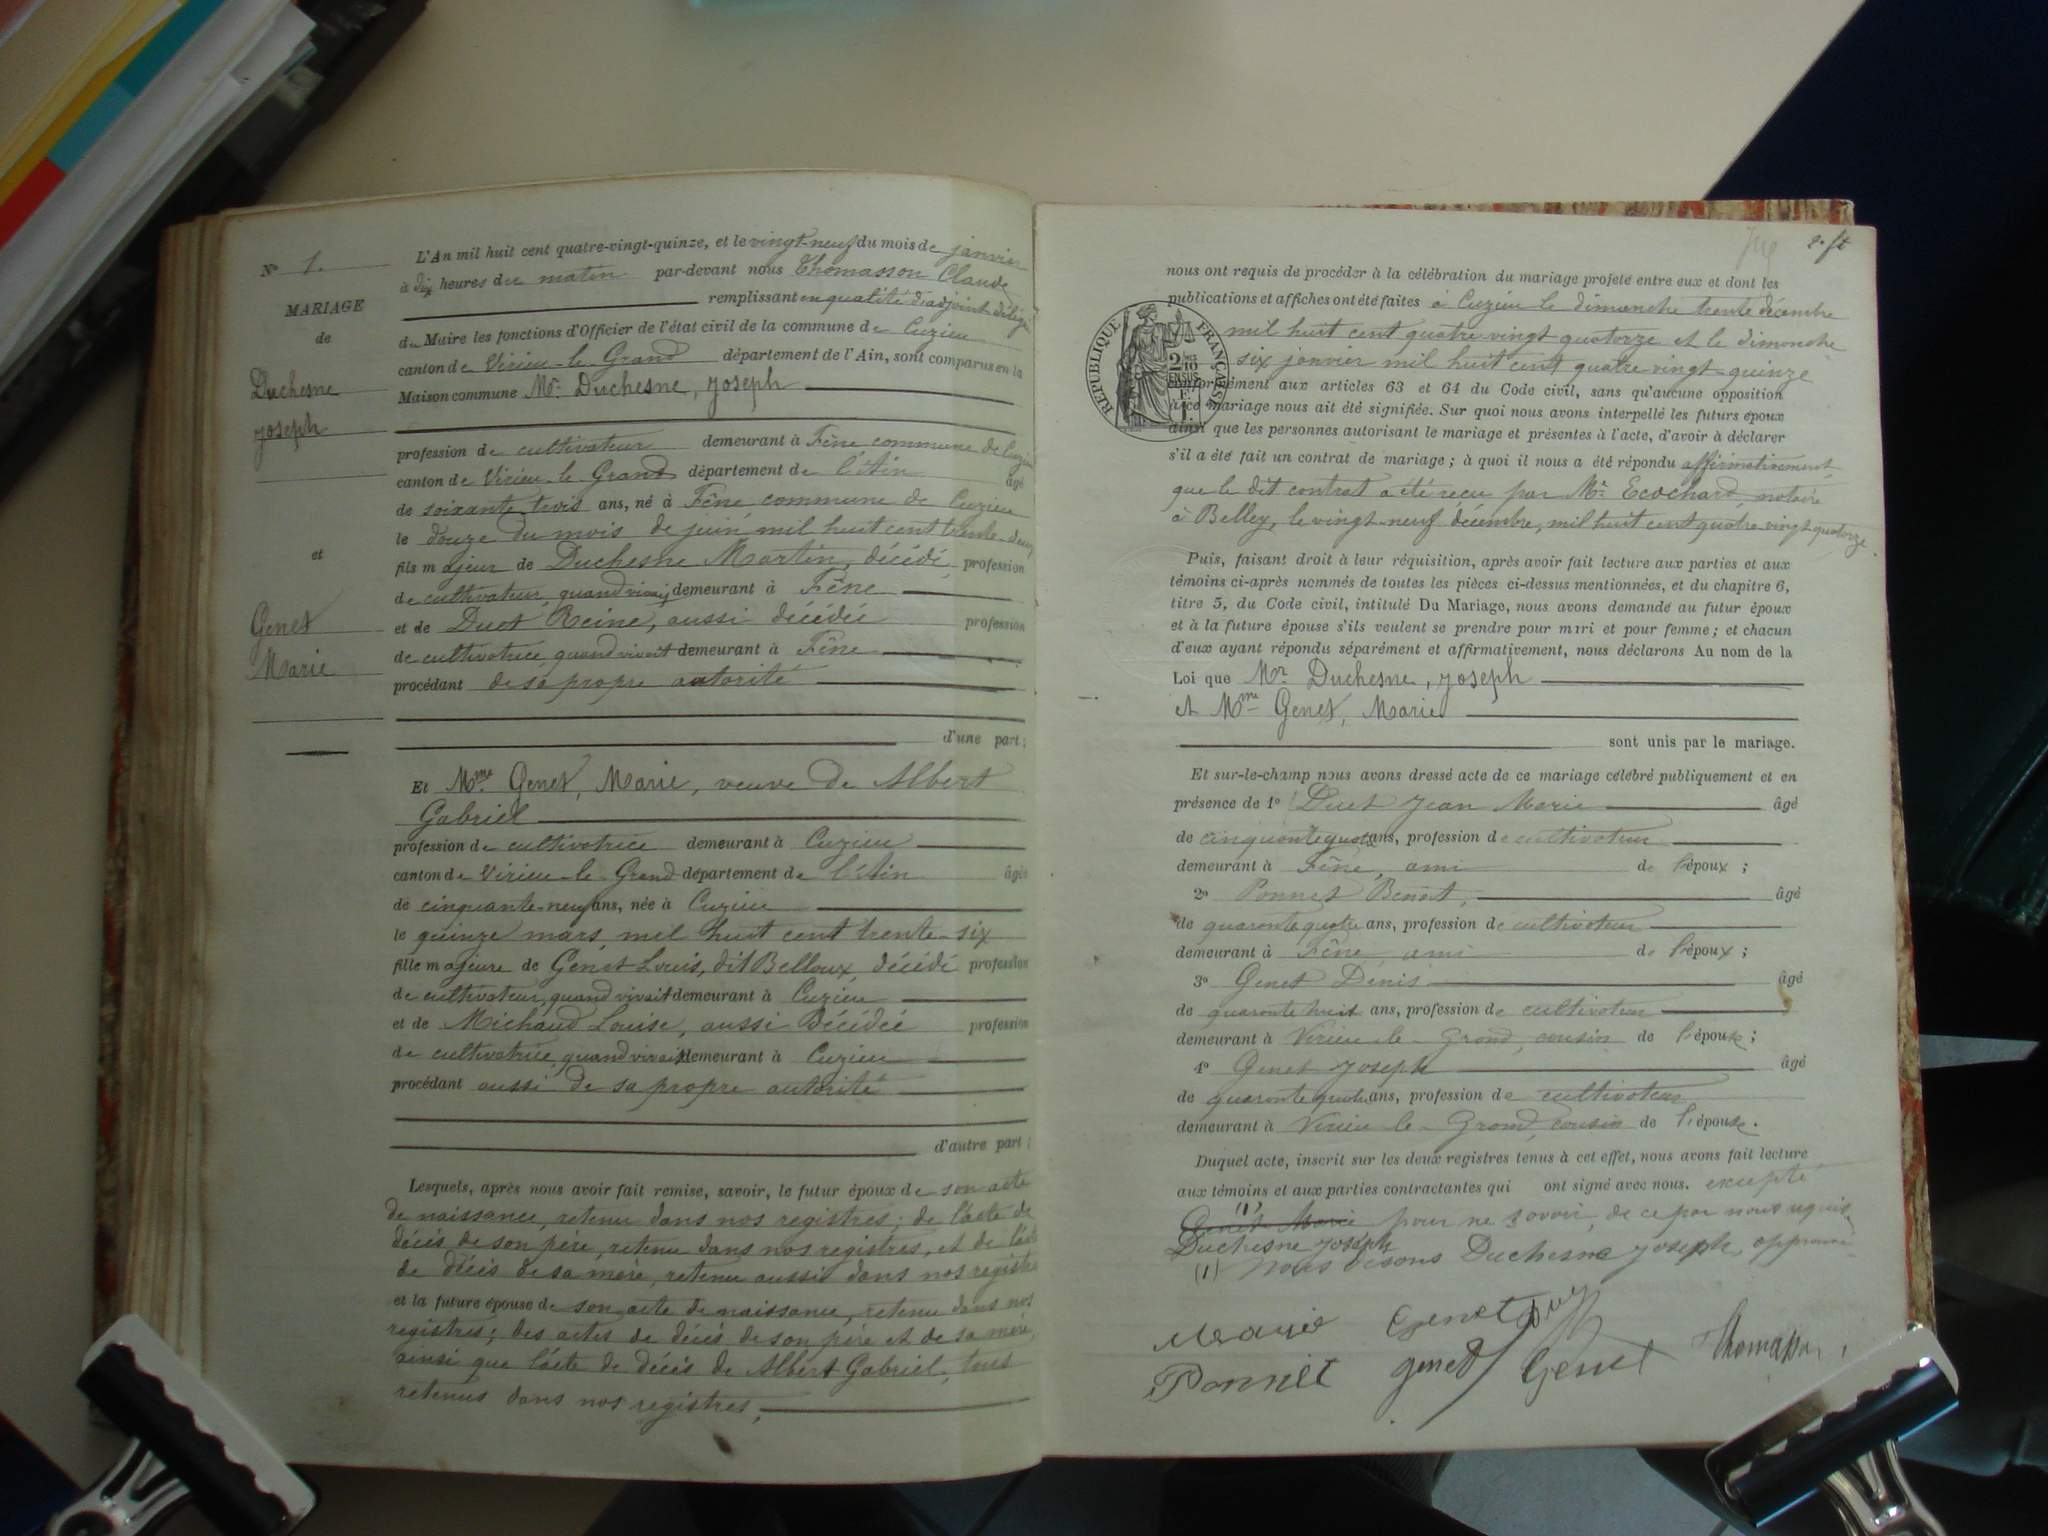 N° 1.
MARIAGE
de
Duchesne
Joseph
et
Genet
Marie
L'An mil huit cent quatre-vingt-quinze, et le vingt-neuf du mois de janvier
à dix heures du matin par-devant nous Thomasson Claude
remplissant en qualité d'adjoint délégué
du Maire les fonctions d'Officier de l'état civil de la commune de Cuzieu
canton de Virieu-le-Grand département de l'Ain, sont comparus en la
Maison commune Mr Duchesne, Joseph
profession de cultivateur demeurant à Fêne commune de Cuzieu
canton de Virieu-le-Grand département de l'Ain âgé
de soixante-trois ans, né à Fêne commune de Cuzieu
le douze du mois de juin mil huit cent trente-deux
fils majeur de Duchesne Martin, décédé, profession
de cultivateur, quand vivait, demeurant à Fêne
et de Duet Reine, aussi décédée profession
de cultivatrice quand vivait demeurant à Fêne
procédant de sa propre autorité
d'une part;
Et Mme Genet, Marie, veuve de Albert
Gabriel
profession de cultivatrice demeurant à Cuzieu
canton de Virieu-le-Grand département de l'Ain âgée
de cinquante-neuf ans, née à Cuzieu
le quinze mars mil huit cent trente-six
fille majeure de Genet Louis, dit Belloux, décédé profession
de cultivateur, quand vivait demeurant à Cuzieu
et de Michaud Louise, aussi décédée profession
de cultivatrice quand vivait demeurant à Cuzieu
procédant aussi de sa propre autorité
d'autre part;
Lesquels, après nous avoir fait remise, savoir, le futur époux de son acte
de naissance, retenu dans nos registres; de l'acte de
décès de son père, retenu dans nos registres, et de l'acte
de décès de sa mère, retenu aussi dans nos registres
et la future épouse de son acte de naissance, retenu dans nos
registres; des actes de décès de son père et de sa mère,
ainsi que l'acte de décès de Albert Gabriel, tous
retenus dans nos registres,
2. ft
nous ont requis de procéder à la célébration du mariage projeté entre eux et dont les
publications et affiches ont été faites à Cuzieu le dimanche trente décembre
mil huit cent quatre vingt quatorze et le dimanche
six janvier mil huit cent quatre vingt-quinze
RÉPUBLIQUE FRANÇAISE
conformément aux articles 63 et 64 du Code civil, sans qu'aucune opposition
à ce mariage nous ait été signifiée. Sur quoi nous avons interpellé les futurs époux
ainsi que les personnes autorisant le mariage et présentes à l'acte, d'avoir à déclarer
s'il a été fait un contrat de mariage; à quoi il nous a été répondu affirmativement,
que le dit contrat a été reçu par Mr Ecochard, notaire
à Belley, le vingt-neuf décembre, mil huit cent quatre vingt quatorze.
Puis, faisant droit à leur réquisition, après avoir fait lecture aux parties et aux
témoins ci-après nommés de toutes les pièces ci-dessus mentionnées, et du chapitre 6,
titre 5, du Code civil, intitulé Du Mariage, nous avons demandé au futur époux
et à la future épouse s'ils veulent se prendre pour mari et pour femme; et chacun
d'eux ayant répondu séparément et affirmativement, nous déclarons Au nom de la
Loi que Mr Duchesne, Joseph
et Mme Genet, Marie
sont unis par le mariage.
Et sur-le-champ nous avons dressé acte de ce mariage célébré publiquement et en
présence de 1° Duet Jean Marie âgé
de cinquante quatre ans, profession de cultivateur
demeurant à Fêne, ami de l'époux;
2° Ponnet Benoît, âgé
de quarante quatre ans, profession de cultivateur
demeurant à Fêne, ami de l'époux;
3° Genet Dénis âgé
de quarante huit ans, profession de cultivateur
demeurant à Virieu-le-Grand, cousin de l'épouse;
4° Genet Joseph âgé
de quarante quatre ans, profession de cultivateur
demeurant à Virieu-le-Grand, cousin de l'épouse.
Duquel acte, inscrit sur les deux registres tenus à cet effet, nous avons fait lecture
aux témoins et aux parties contractantes qui ont signé avec nous. excepté
(1)
Genet Marie pour ne savoir, de ce par nous requis
Duchesne Joseph
(1) Nous disons Duchesne Joseph, approuvé
Marie Genet Duet
Ponnet genet Genet Thomasson